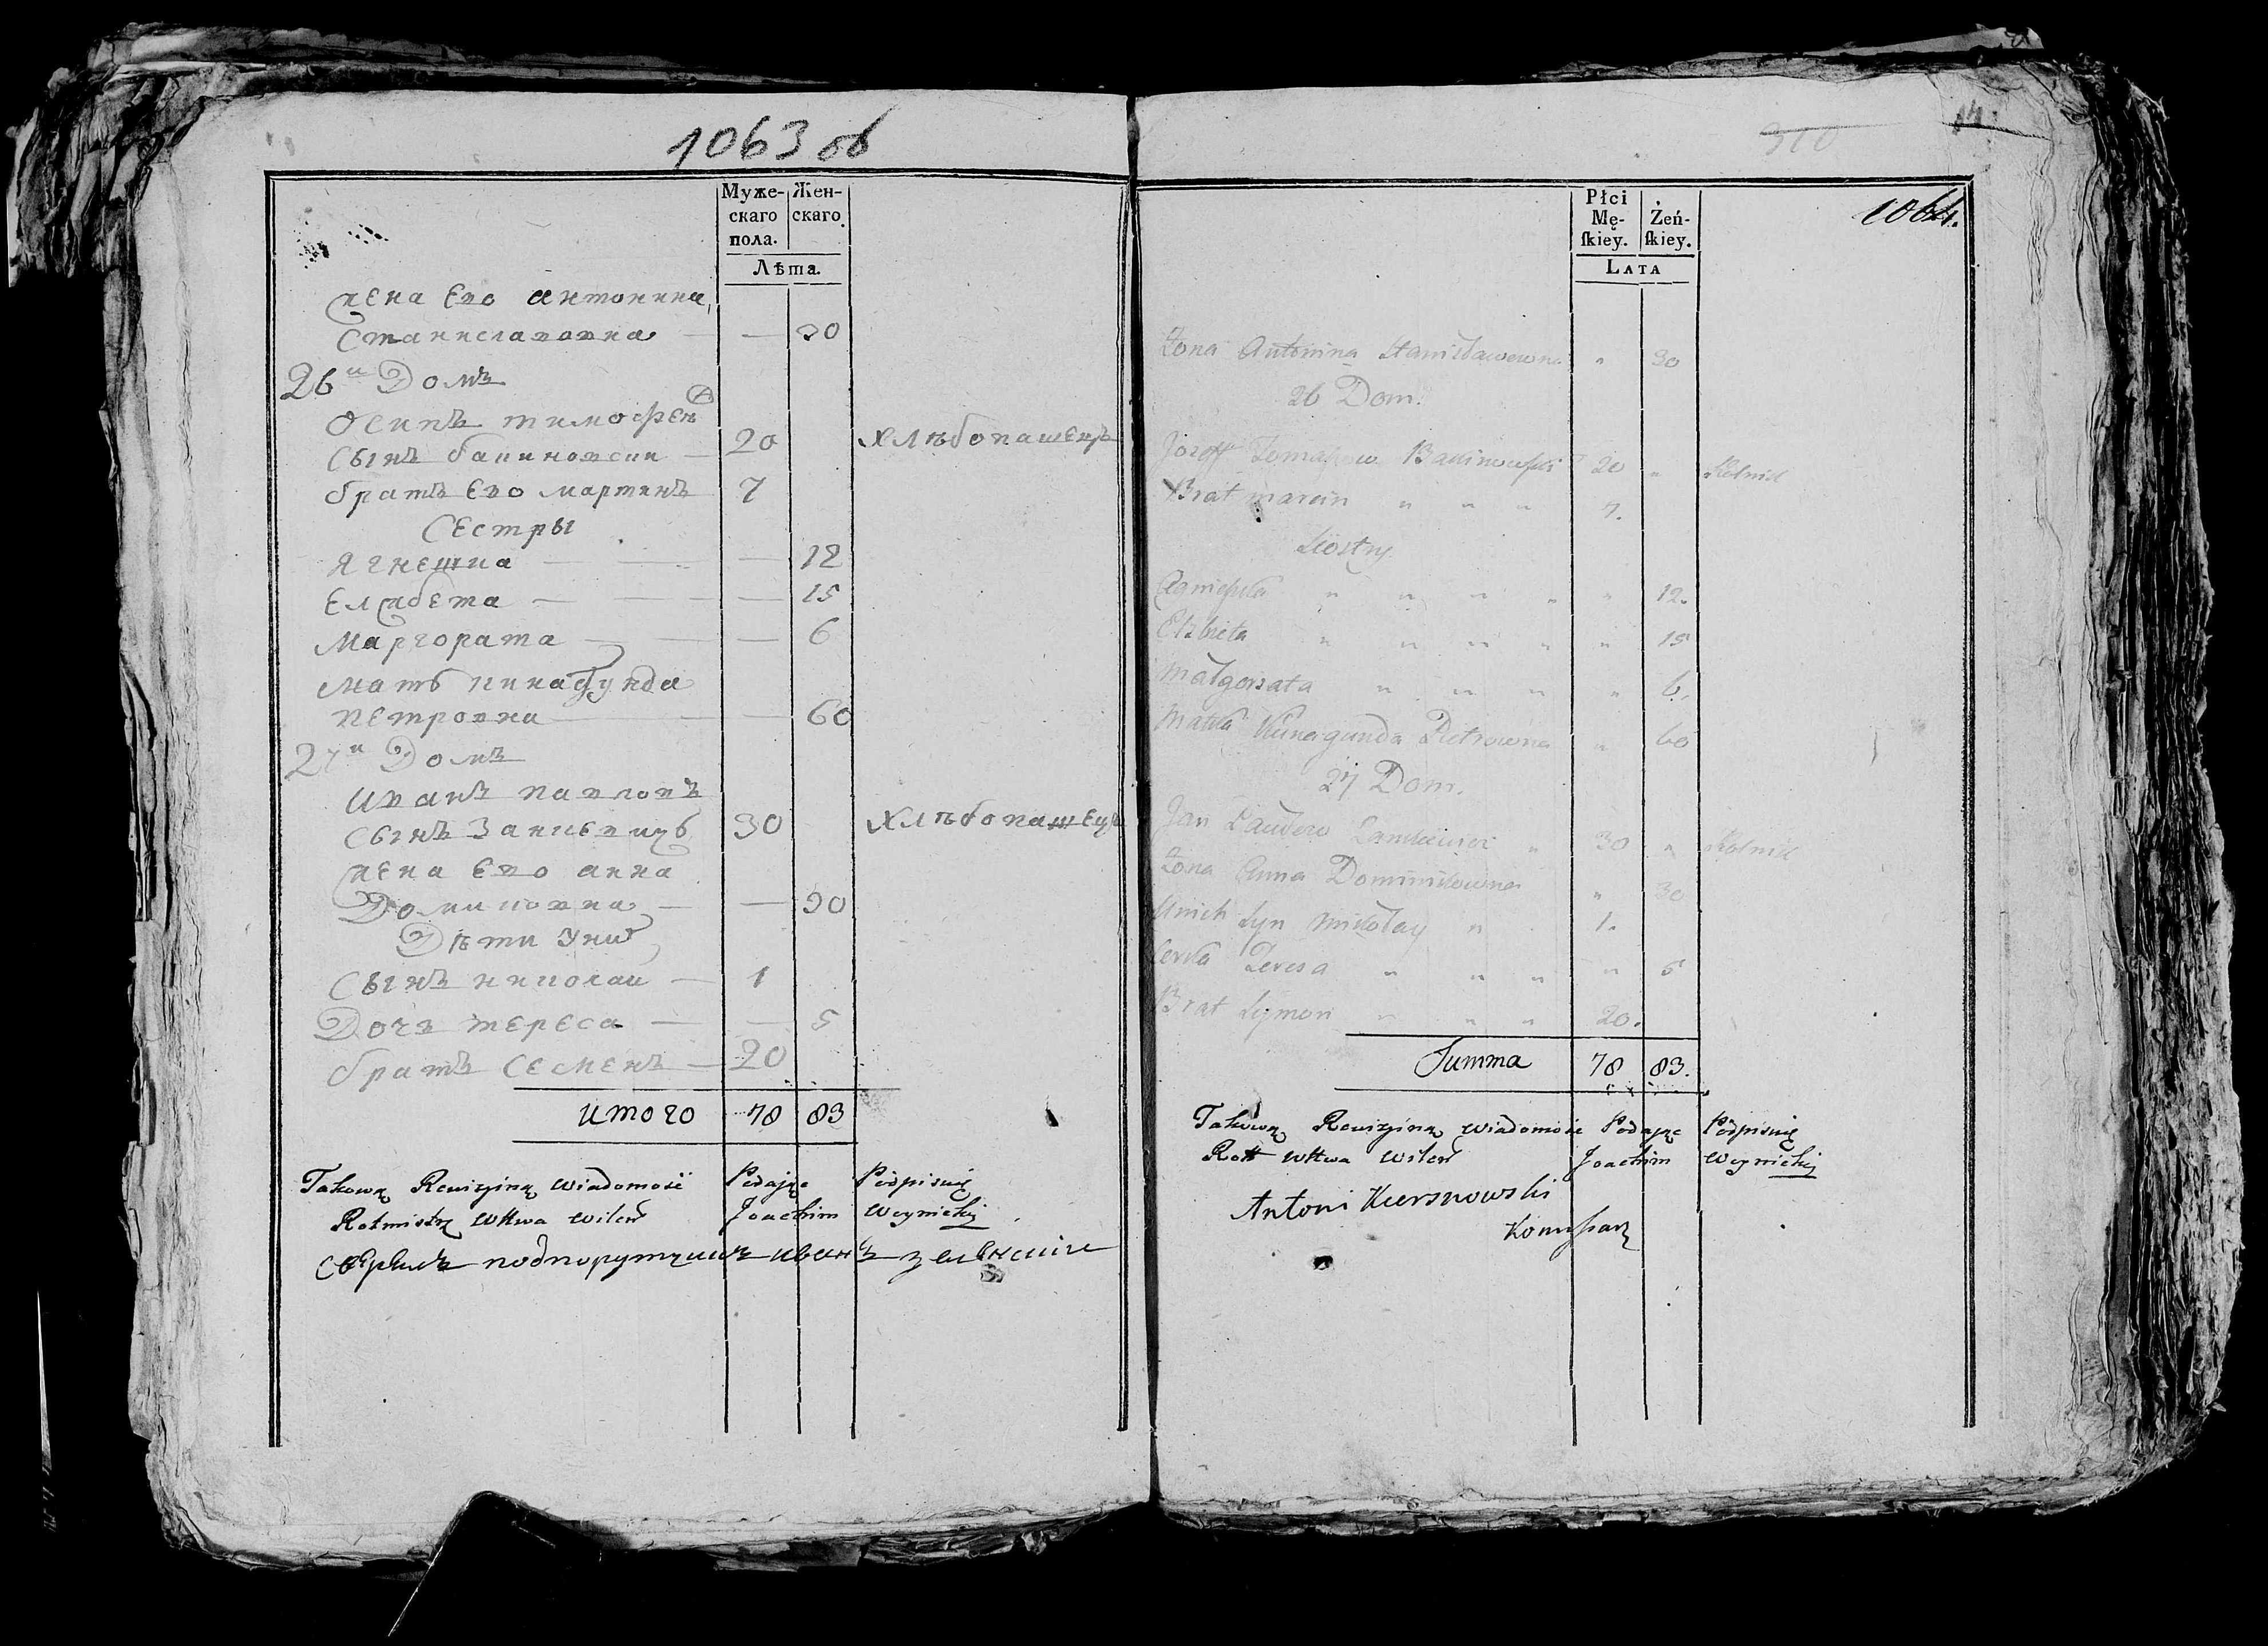 1063 об
Муже-
скаго
пола.
Жен-
скаго.
Лѣта.
жена Ево Антонина
Станиславовна — — 30
26й Домъ
Осипъ тимофеѣ
Сынъ бапиновски — 20 хлѣбопашецъ
братъ Ево мартинъ 7
Сестры
Ягнешка — — — 12
Елжбета — — — 15
Маргората — — — 6
Мать кинагунда
петровна — — — 60
27й Домъ
Иванъ павловъ
Сынъ Занкевичь 30 хлѣбопашецъ
жена Ево анна
Доминковна — — 30
Дѣти У них
Сынъ николаи — 1
Дочь тереса — — 5
братъ Семенъ — 20
итого 78 83
Takową Rewizyiną Wiadomość Podając Podpisuię
Rotmistrz Wttwa Wileń Joachim Woynicki
подпорутчикъ иванъ
310
14.
1064.
Płci
Mę-
ſkiey.
Żeń-
ſkiey.
LATA
Żona Antonina Stanisławowna " 30
26 Dom.
Jozeff Tomaszow 20 " Rolnik
Brat marcin " " " 7.
Siostry
Agnieszka " " " " " 12.
Elzbieta " " " " " 15
Małgorzata " " " " 6.
Matka Kunagunda Pietrowna " 60
27 Dom.
Jan Pawłow Zankiewicz " 30 " Rolnik
Żona Anna Dominikowna " 30
Unich Syn Mikołay " 1.
Corka Teresa " " " " 5
Brat Symon " " " 20.
Summa 78 83.
Takową Rewizyiną Wiadomość Podając Podpisuię
Rott Wttwa Wileń Joachim Woynicki
Antoni Kursnowski
Komisarz